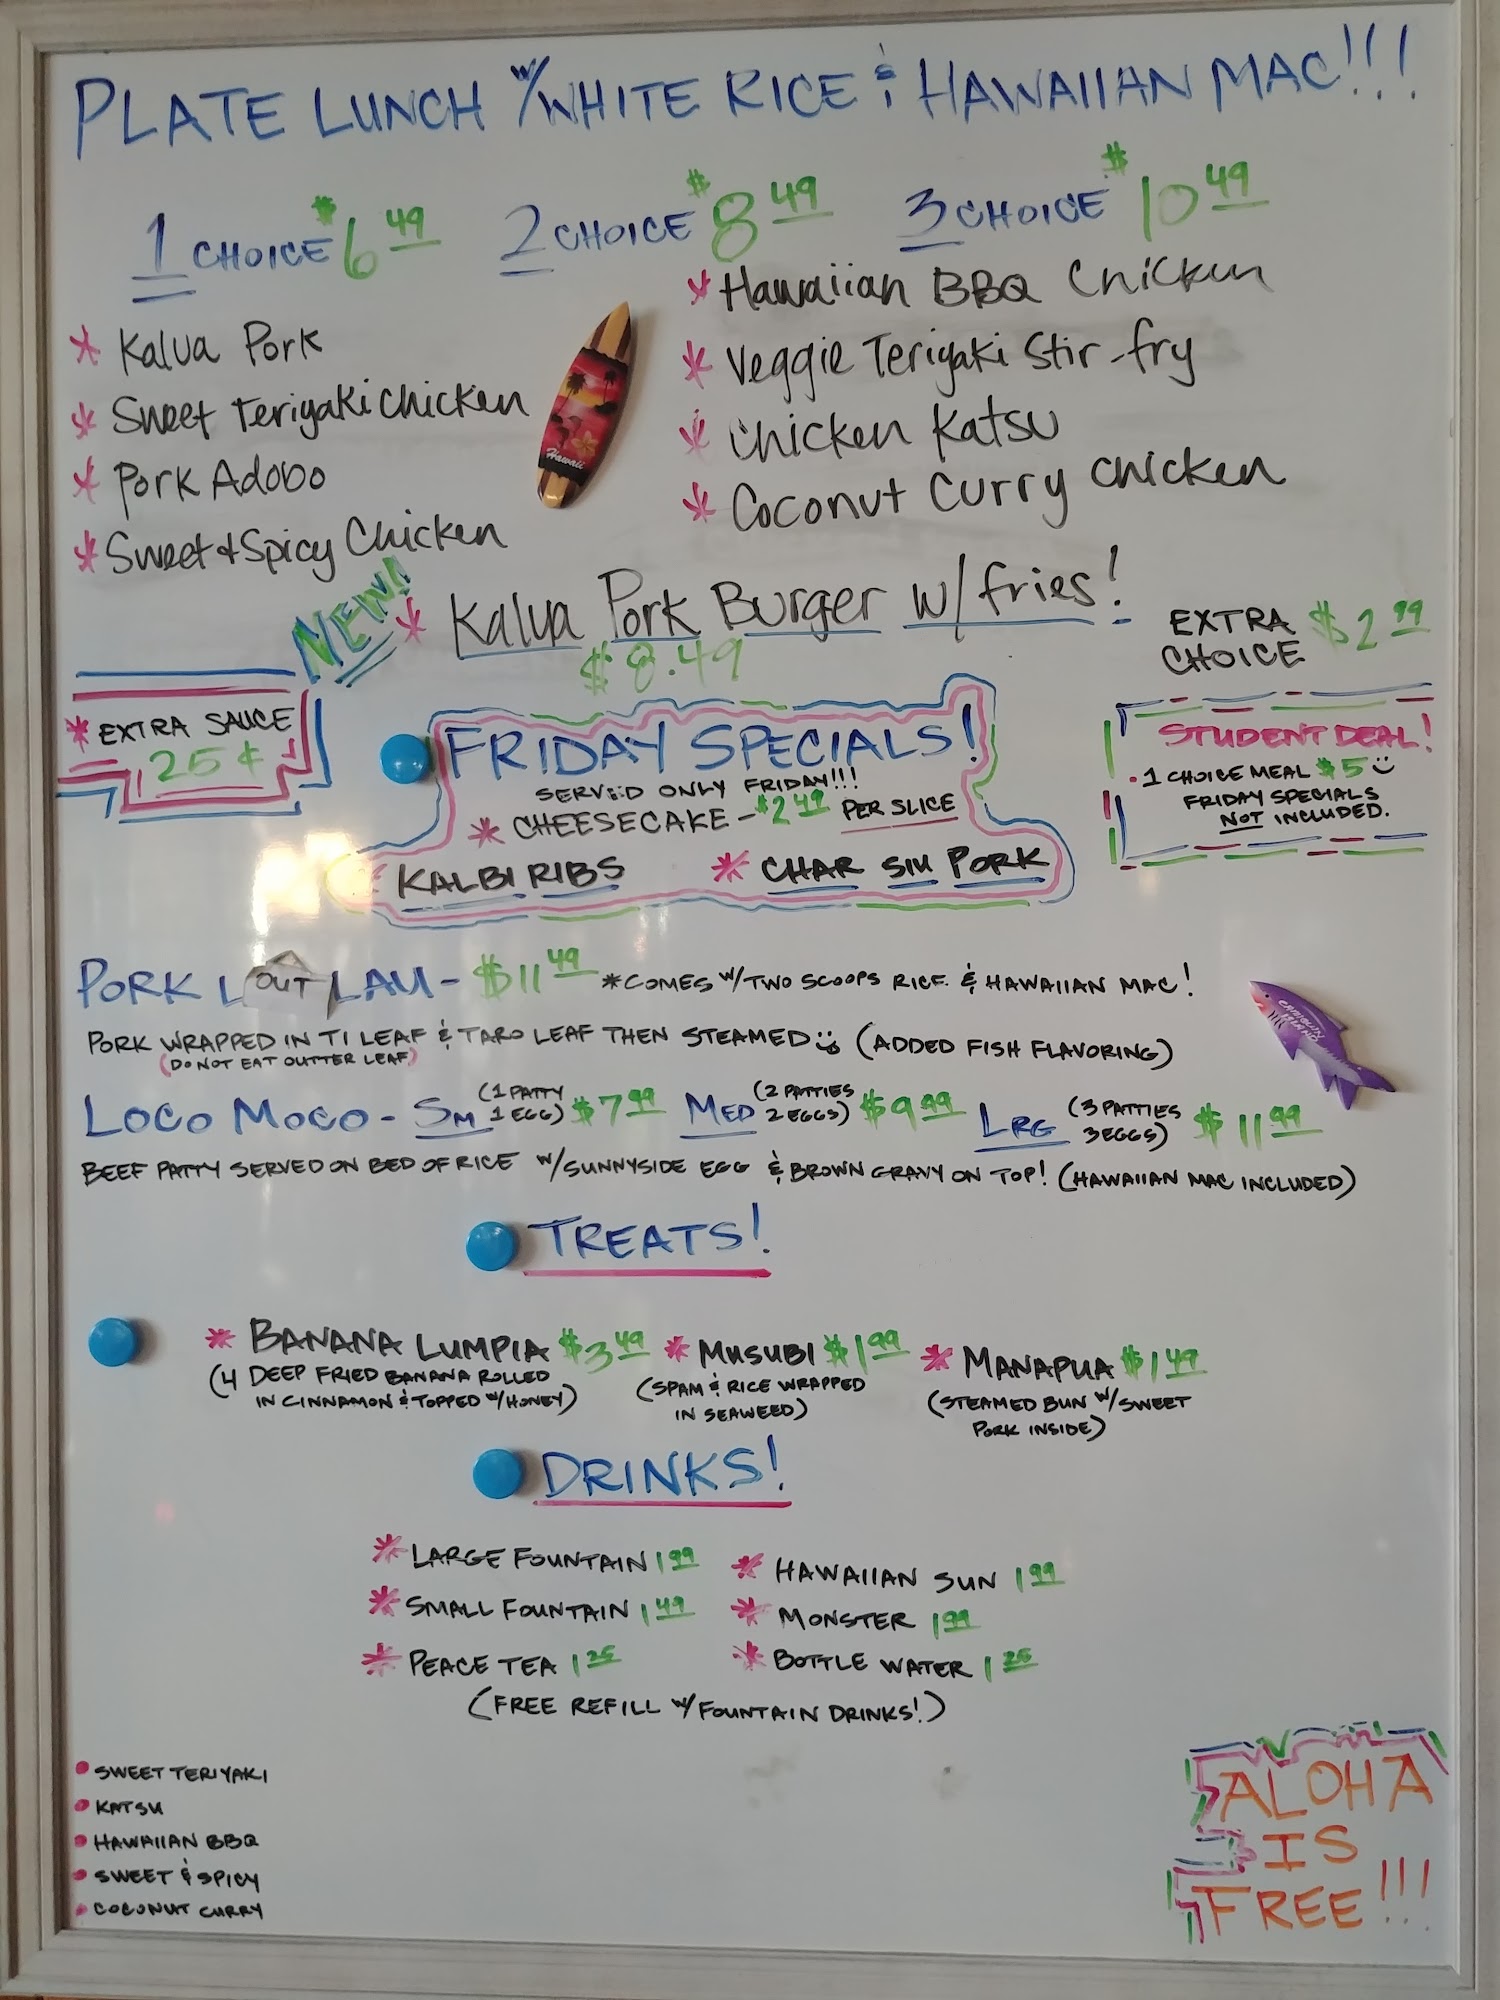 PLATE LUNCH W/WHITE RICE & HAWAIIAN MAC!!!
1 CHOICE $6.49 2 CHOICE $8.49 3 CHOICE $10.49
* Kalua Pork
* Sweet Teriyaki Chicken
* Pork Adobo
* Sweet + Spicy Chicken
* Hawaiian BBQ Chicken
* Veggie Teriyaki Stir-fry
* Chicken Katsu
* Coconut Curry Chicken
Hawaii
NEW! * Kalua Pork Burger w/fries!
$8.49
EXTRA CHOICE $2.99
* EXTRA SAUCE
25¢
FRIDAY SPECIALS!
SERVED ONLY FRIDAY!!!
* CHEESECAKE - $2.49 PER SLICE
* KALBI RIBS * CHAR SIU PORK
STUDENT DEAL!
• 1 CHOICE MEAL $5
FRIDAY SPECIALS
NOT INCLUDED.
PORK L OUT LAU - $11.49 *COMES W/TWO SCOOPS RICE & HAWAIIAN MAC!
PORK WRAPPED IN TI LEAF & TARO LEAF THEN STEAMED (ADDED FISH FLAVORING)
(DO NOT EAT OUTTER LEAF)
CAMIGUIN ISLAND
LOCO MOCO - SM (1 PATTY 1 EGG) $7.99 MED (2 PATTIES 2 EGGS) $9.99 LRG (3 PATTIES 3 EGGS) $11.99
BEEF PATTY SERVED ON BED OF RICE W/SUNNYSIDE EGG & BROWN GRAVY ON TOP! (HAWAIIAN MAC INCLUDED)
TREATS!
* BANANA LUMPIA $3.49 * MUSUBI $1.99 * MANAPUA $1.49
(4 DEEP FRIED BANANA ROLLED
IN CINNAMON & TOPPED W/HONEY)
(SPAM & RICE WRAPPED
IN SEAWEED)
(STEAMED BUN W/SWEET
PORK INSIDE)
DRINKS!
* LARGE FOUNTAIN 1.99
* SMALL FOUNTAIN 1.49
* PEACE TEA 1.25
* HAWAIIAN SUN 1.99
* MONSTER 1.99
* BOTTLE WATER 1.25
(FREE REFILL W/FOUNTAIN DRINKS!)
• SWEET TERIYAKI
• KATSU
• HAWAIIAN BBQ
• SWEET & SPICY
• COCONUT CURRY
ALOHA
IS
FREE!!!